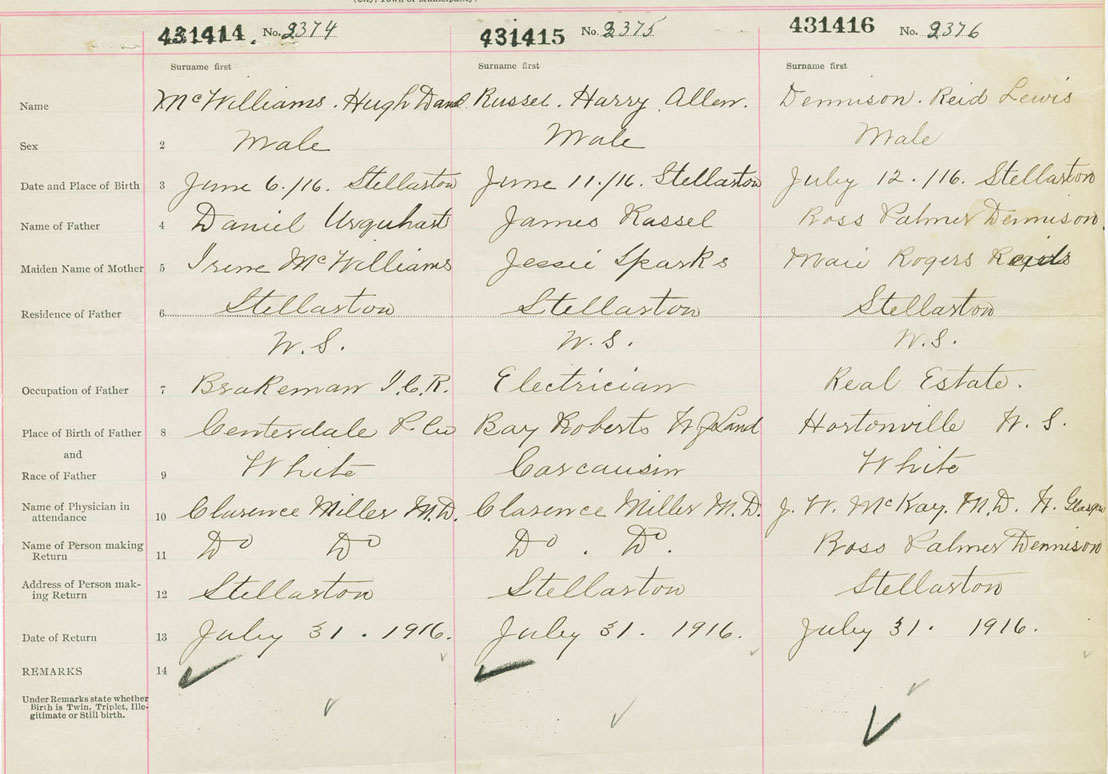 431414. No. 2374
431415 No. 2375
431416 No. 2376
Surname first Surname first Surname first
Name McWilliams. Hugh Russel. Harry Allen. Dennison. Reid Lewis
Sex 2 Male Male Male
Date and Place of Birth 3 June 6./16. Stellarton June 11./16. Stellarton July 12./16. Stellarton
Name of Father 4 Daniel Urquhart James Russel Ross Palmer Dennison.
Maiden Name of Mother 5 Irene McWilliams Jessie Sparks Rogers
Residence of Father 6 Stellarton Stellarton Stellarton
N.S. N.S. N.S.
Occupation of Father 7 Brakeman I.C.R. Electrician Real Estate.
Place of Birth of Father 8 Centerdale P. Co Bay Roberts Nfland Hortonville N.S.
and
Race of Father 9 White Carcausin White
Name of Physician in
attendance 10 Clarence Miller M.D. Clarence Miller M.D. J. W. McKay. M.D. N. Glasgow
Name of Person making
Return 11 Do Do Do. Do. Ross Palmer Dennison
Address of Person mak-
ing Return 12 Stellarton Stellarton Stellarton
Date of Return 13 July 31. 1916. July 31. 1916. July 31. 1916.
REMARKS 14
Under Remarks state whether
Birth is Twin, Triplet, Ille-
gitimate or Still birth.